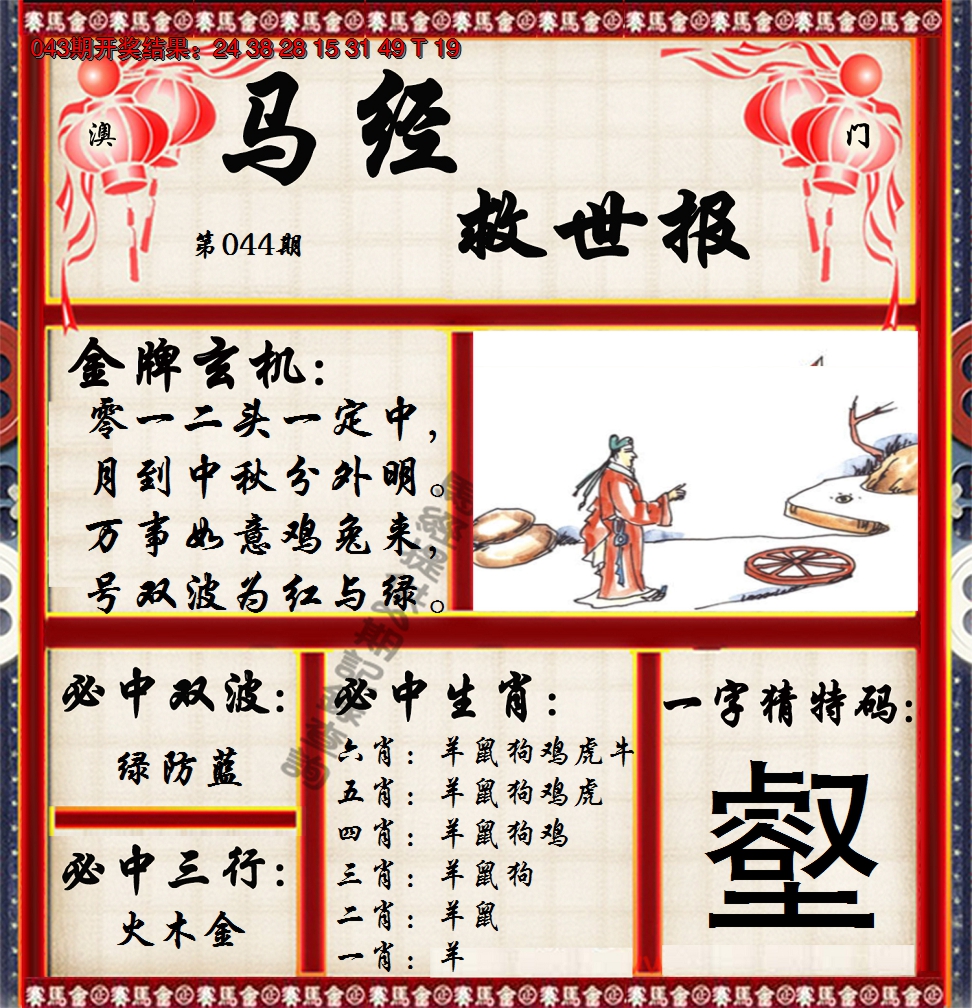 赛馬会㊣赛馬会㊣赛馬会㊣赛馬会㊣赛馬会㊣赛馬会㊣
043期开奖结果：24 38 28 15 31 49 T 19
澳
门
马经
救世报
第044期
金牌玄机：
零一二头一定中，
月到中秋分外明。
万事如意鸡兔来，
号双波为红与绿。
必中双波：
绿防蓝
必中三行：
火木金
必中生肖：
六肖：羊鼠狗鸡虎牛
五肖：羊鼠狗鸡虎
四肖：羊鼠狗鸡
三肖：羊鼠狗
二肖：羊鼠
一肖：羊
一字猜特码：
壡